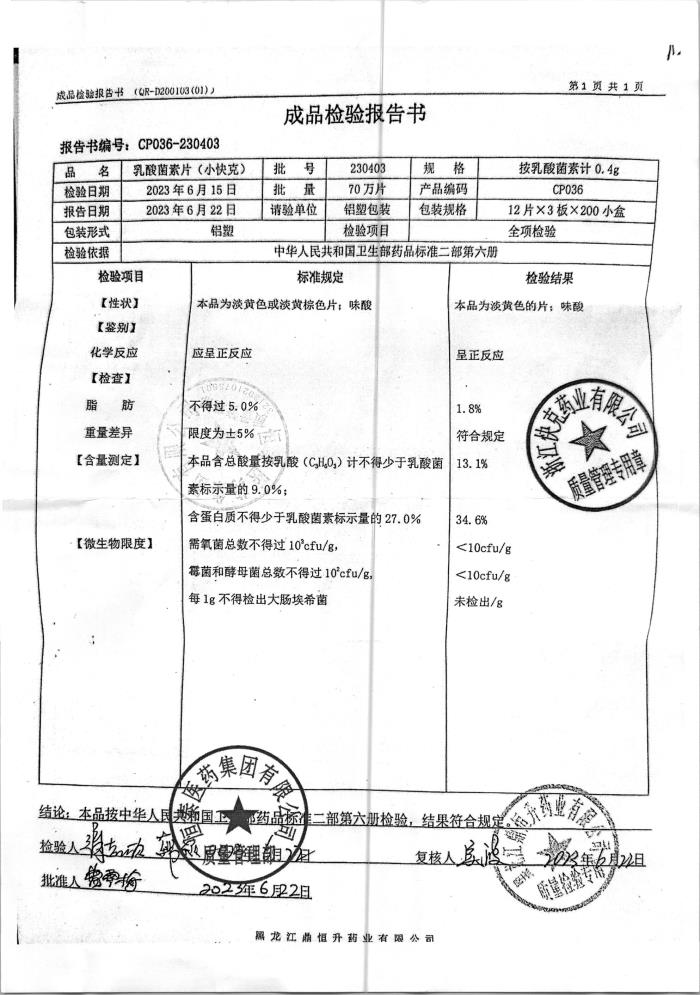 成品检验报告书 (QR-D200103(01))
第1页 共1页
成品检验报告书
报告书编号：CP036-230403
品 名 乳酸菌素片（小快克） 批 号 230403 规 格 按乳酸菌素计0.4g
检验日期 2023年6月15日 批 量 70万片 产品编码 CP036
报告日期 2023年6月22日 请验单位 铝塑包装 包装规格 12片×3板×200小盒
包装形式 铝塑 检验项目 全项检验
检验依据 中华人民共和国卫生部药品标准二部第六册
检验项目 标准规定 检验结果
【性状】 本品为淡黄色或淡黄棕色片；味酸 本品为淡黄色的片；味酸
【鉴别】
化学反应 应呈正反应 呈正反应
【检查】
脂 肪 不得过5.0% 1.8%
重量差异 限度为±5% 符合规定
【含量测定】 本品含总酸量按乳酸（C₃H₆O₃）计不得少于乳酸菌 13.1%
素标示量的9.0%；
含蛋白质不得少于乳酸菌素标示量的27.0% 34.6%
【微生物限度】 需氧菌总数不得过10³cfu/g， <10cfu/g
霉菌和酵母菌总数不得过10²cfu/g， <10cfu/g
每1g不得检出大肠埃希菌 未检出/g
浙江快克药业有限公司
质量管理专用章
医药集团有限公司
质量管理部
结论：本品按中华人民共和国卫生部药品标准二部第六册检验，结果符合规定
检验人
复核人 2023年6月22日
批准人 2023年6月22日
黑龙江鼎恒升药业有限公司